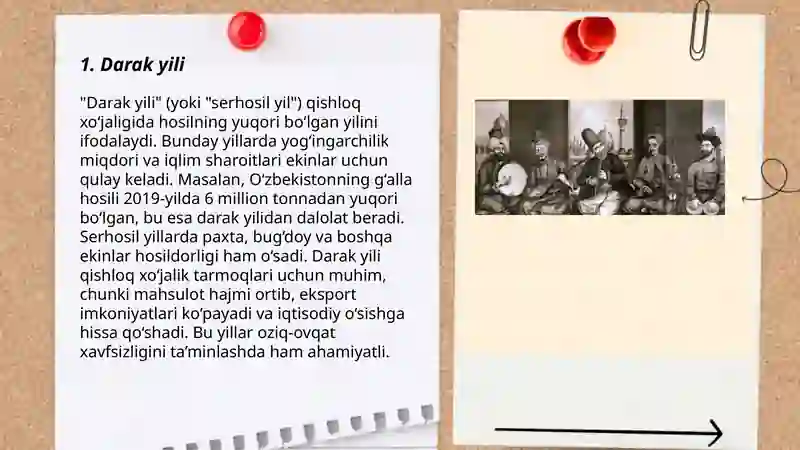 1. Darak yili
"Darak yili" (yoki "serhosil yil") qishloq
xo‘jaligida hosilning yuqori bo‘lgan yilini
ifodalaydi. Bunday yillarda yog‘ingarchilik
miqdori va iqlim sharoitlari ekinlar uchun
qulay keladi. Masalan, O‘zbekistonning g‘alla
hosili 2019-yilda 6 million tonnadan yuqori
bo‘lgan, bu esa darak yilidan dalolat beradi.
Serhosil yillarda paxta, bug‘doy va boshqa
ekinlar hosildorligi ham o‘sadi. Darak yili
qishloq xo‘jalik tarmoqlari uchun muhim,
chunki mahsulot hajmi ortib, eksport
imkoniyatlari ko‘payadi va iqtisodiy o‘sishga
hissa qo‘shadi. Bu yillar oziq-ovqat
xavfsizligini ta’minlashda ham ahamiyatli.